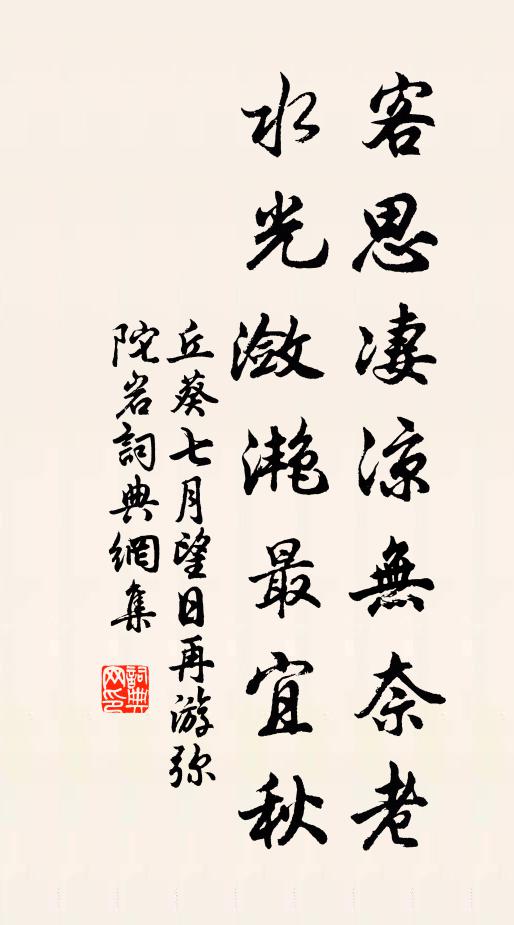 客思凄涼無奈老
水光瀲灧最宜秋
丘葵七月望日再游弥
陀岩詞典網集
詞典网印